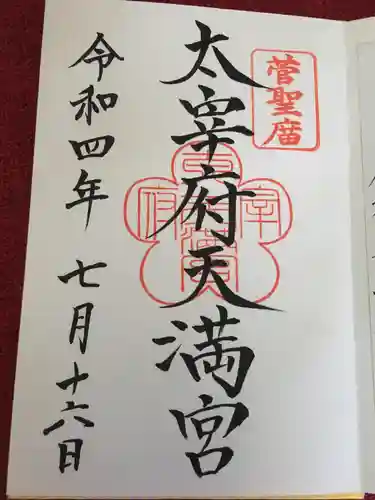 菅聖廟
太宰府天満宮
令和四年 七月十六日